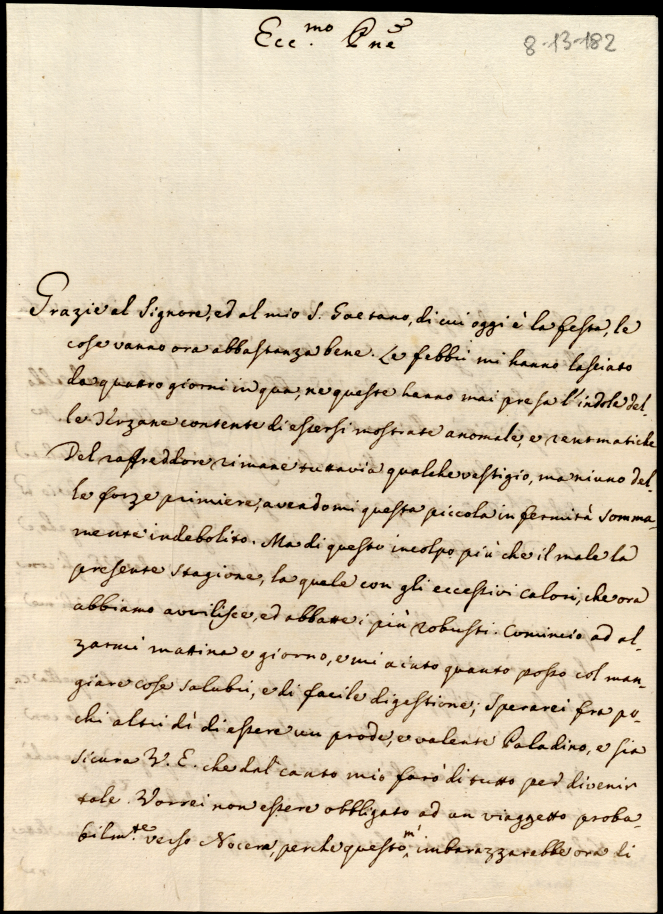 Ecc.mo Pne
8-13-182
Grazie al Signore, ed al mio S. Gaetano, di cui oggi è la festa, le
cose vanno ora abbastanza bene. Le febbri mi hanno lasciato
da quattro giorni in qua, ne queste hanno mai presa l'indole del-
le terzane contente di essersi mostrate anomale, e reumatiche
Del raffreddore rimane tuttavia qualche vestigio, ma niuno del-
le forze primiere, avendomi questa piccola infermità somma-
mente indebolito. Ma di questo incolpo più che il male la
presente stagione, la quale con gli eccessivi calori, che ora
abbiamo avvilisce, ed abbatte i più robusti. Comincio ad al-
zarmi mattina e giorno, e mi aiuto quanto posso col man-
giare cose salubri, e di facile digestione; Sperarei fra po-
chi altri dì di essere un prode, e valente Paladino, e sia
sicura V. E. che dal canto mio farò di tutto per divenir
tale. Vorrei non essere obbligato ad un viaggetto proba-
bilmte verso Nocera, perche questo mi imbarazzarebbe ora di